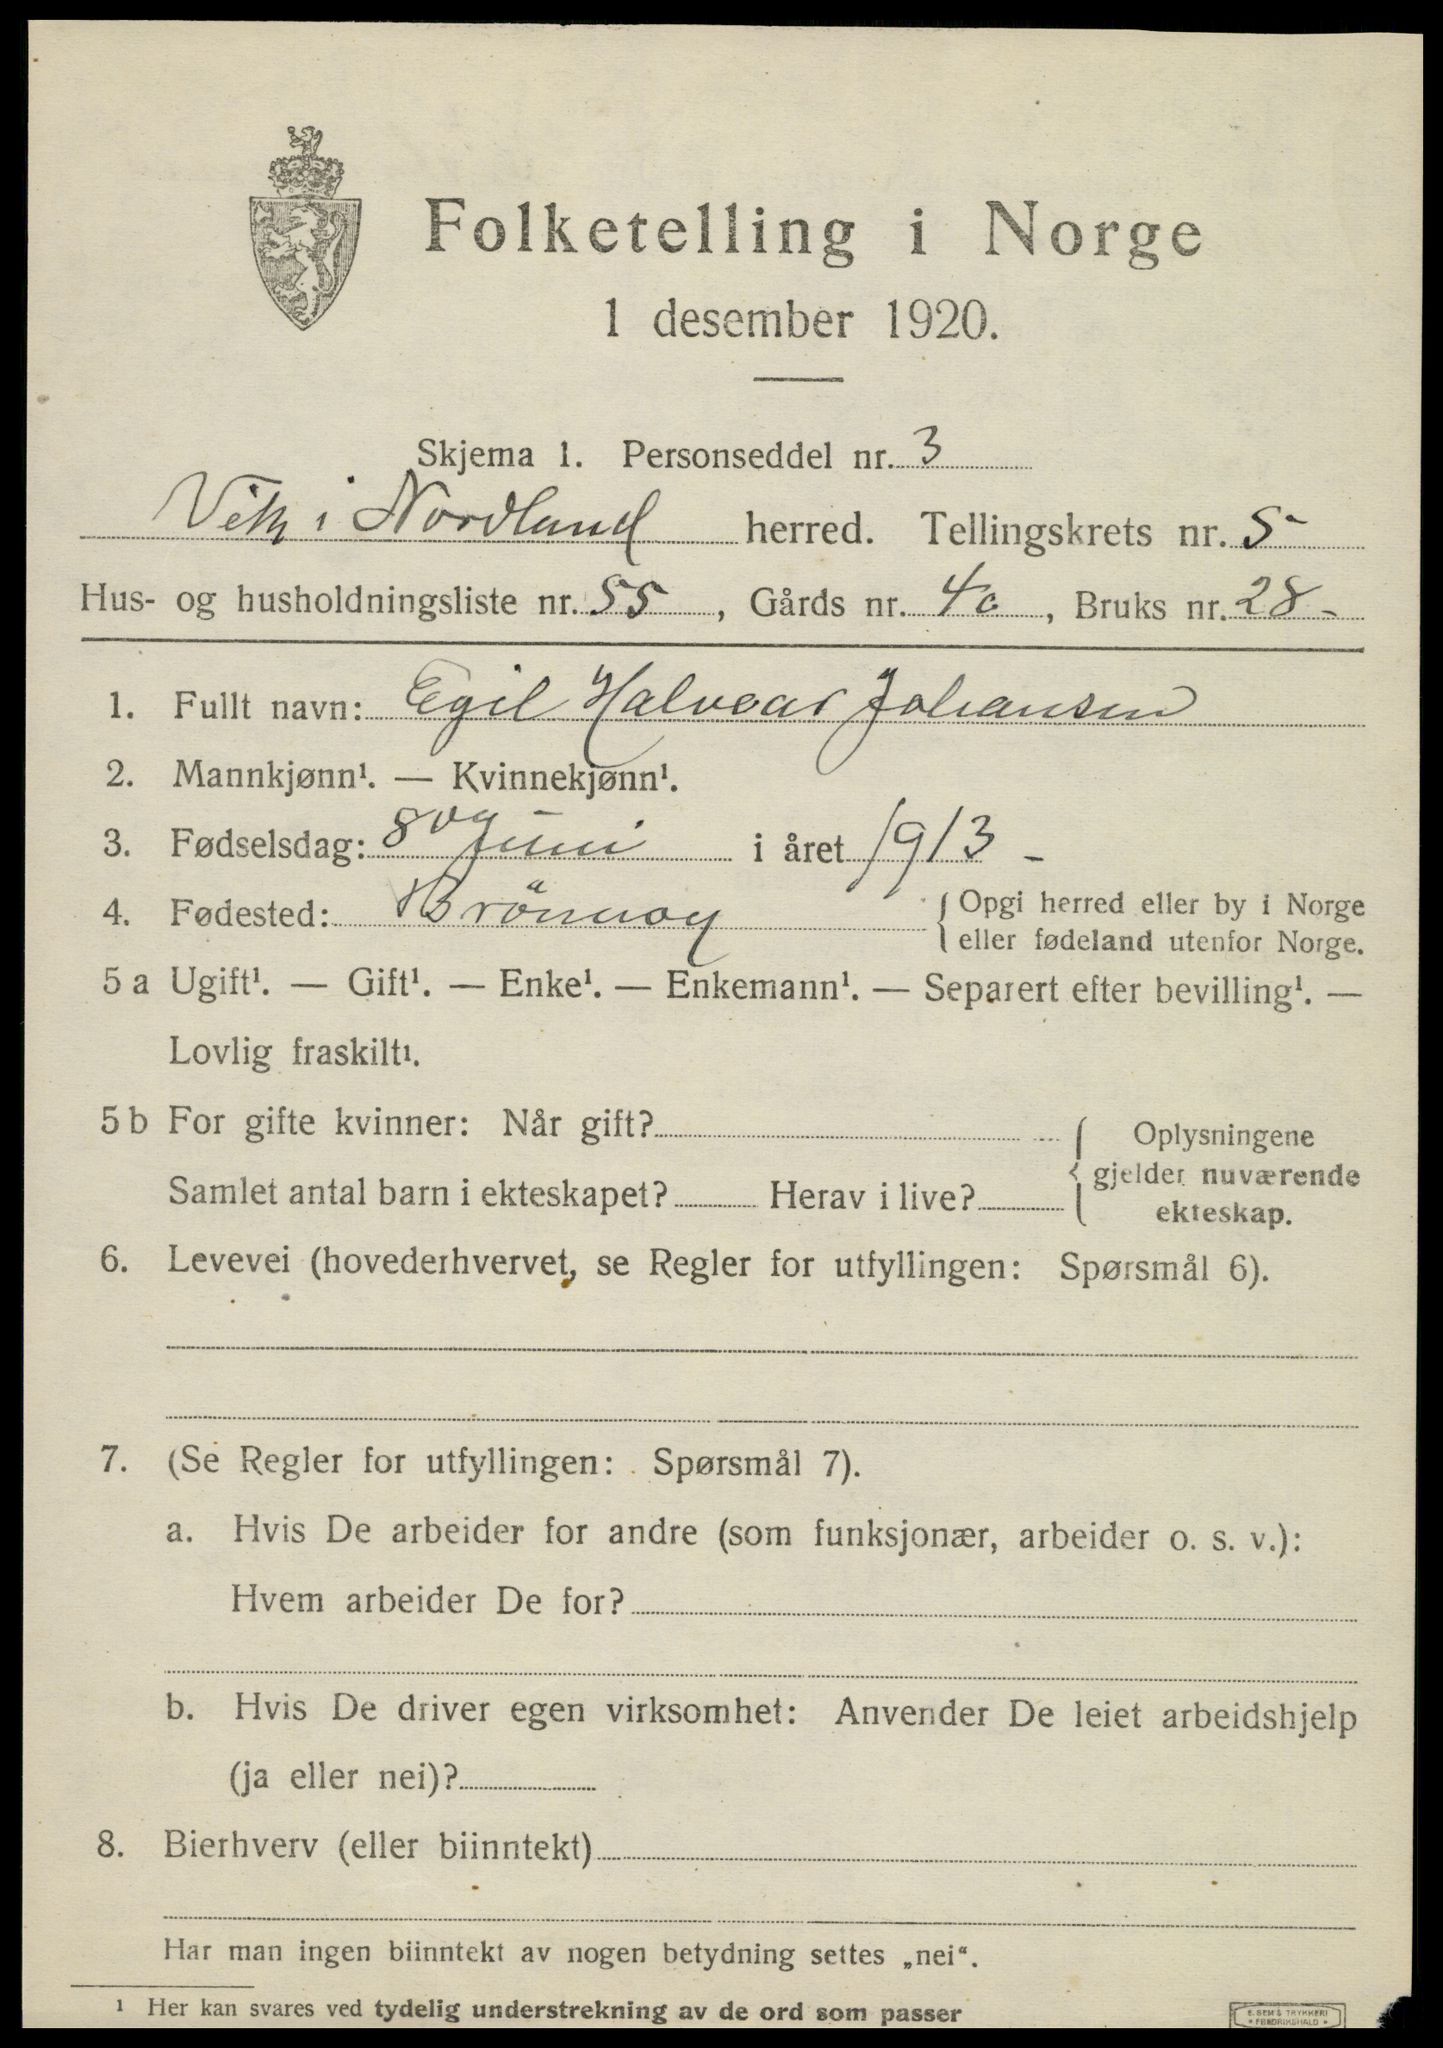 Folketelling i Norge
1 desember 1920.
Skjema 1. Personseddel nr. 3
Vik i Nordland herred. Tellingskrets nr. 5
Hus- og husholdningsliste nr. 55, Gårds nr. 40, Bruks nr. 28-
1. Fullt navn: Egil Halvaar Johansen
2. Mannkjønn¹. — Kvinnekjønn¹.
3. Fødselsdag: 8 Juni i året 1913 -
4. Fødested: Brönnöy { Opgi herred eller by i Norge
eller fødeland utenfor Norge.
5 a Ugift¹. — Gift¹. — Enke¹. — Enkemann¹. — Separert efter bevilling¹. —
Lovlig fraskilt¹.
5 b For gifte kvinner: Når gift? { Oplysningene
gjelder nuværende
Samlet antal barn i ekteskapet? Herav i live? ekteskap.
6. Levevei (hovederhvervet, se Regler for utfyllingen: Spørsmål 6).
7. (Se Regler for utfyllingen: Spørsmål 7).
a. Hvis De arbeider for andre (som funksjonær, arbeider o. s. v.):
Hvem arbeider De for?
b. Hvis De driver egen virksomhet: Anvender De leiet arbeidshjelp
(ja eller nei)?
8. Bierhverv (eller biinntekt)
Har man ingen biinntekt av nogen betydning settes „nei“.
¹ Her kan svares ved tydelig understrekning av de ord som passer
E. SEM'S TRYKKERI
* FREDRIKSHALD *